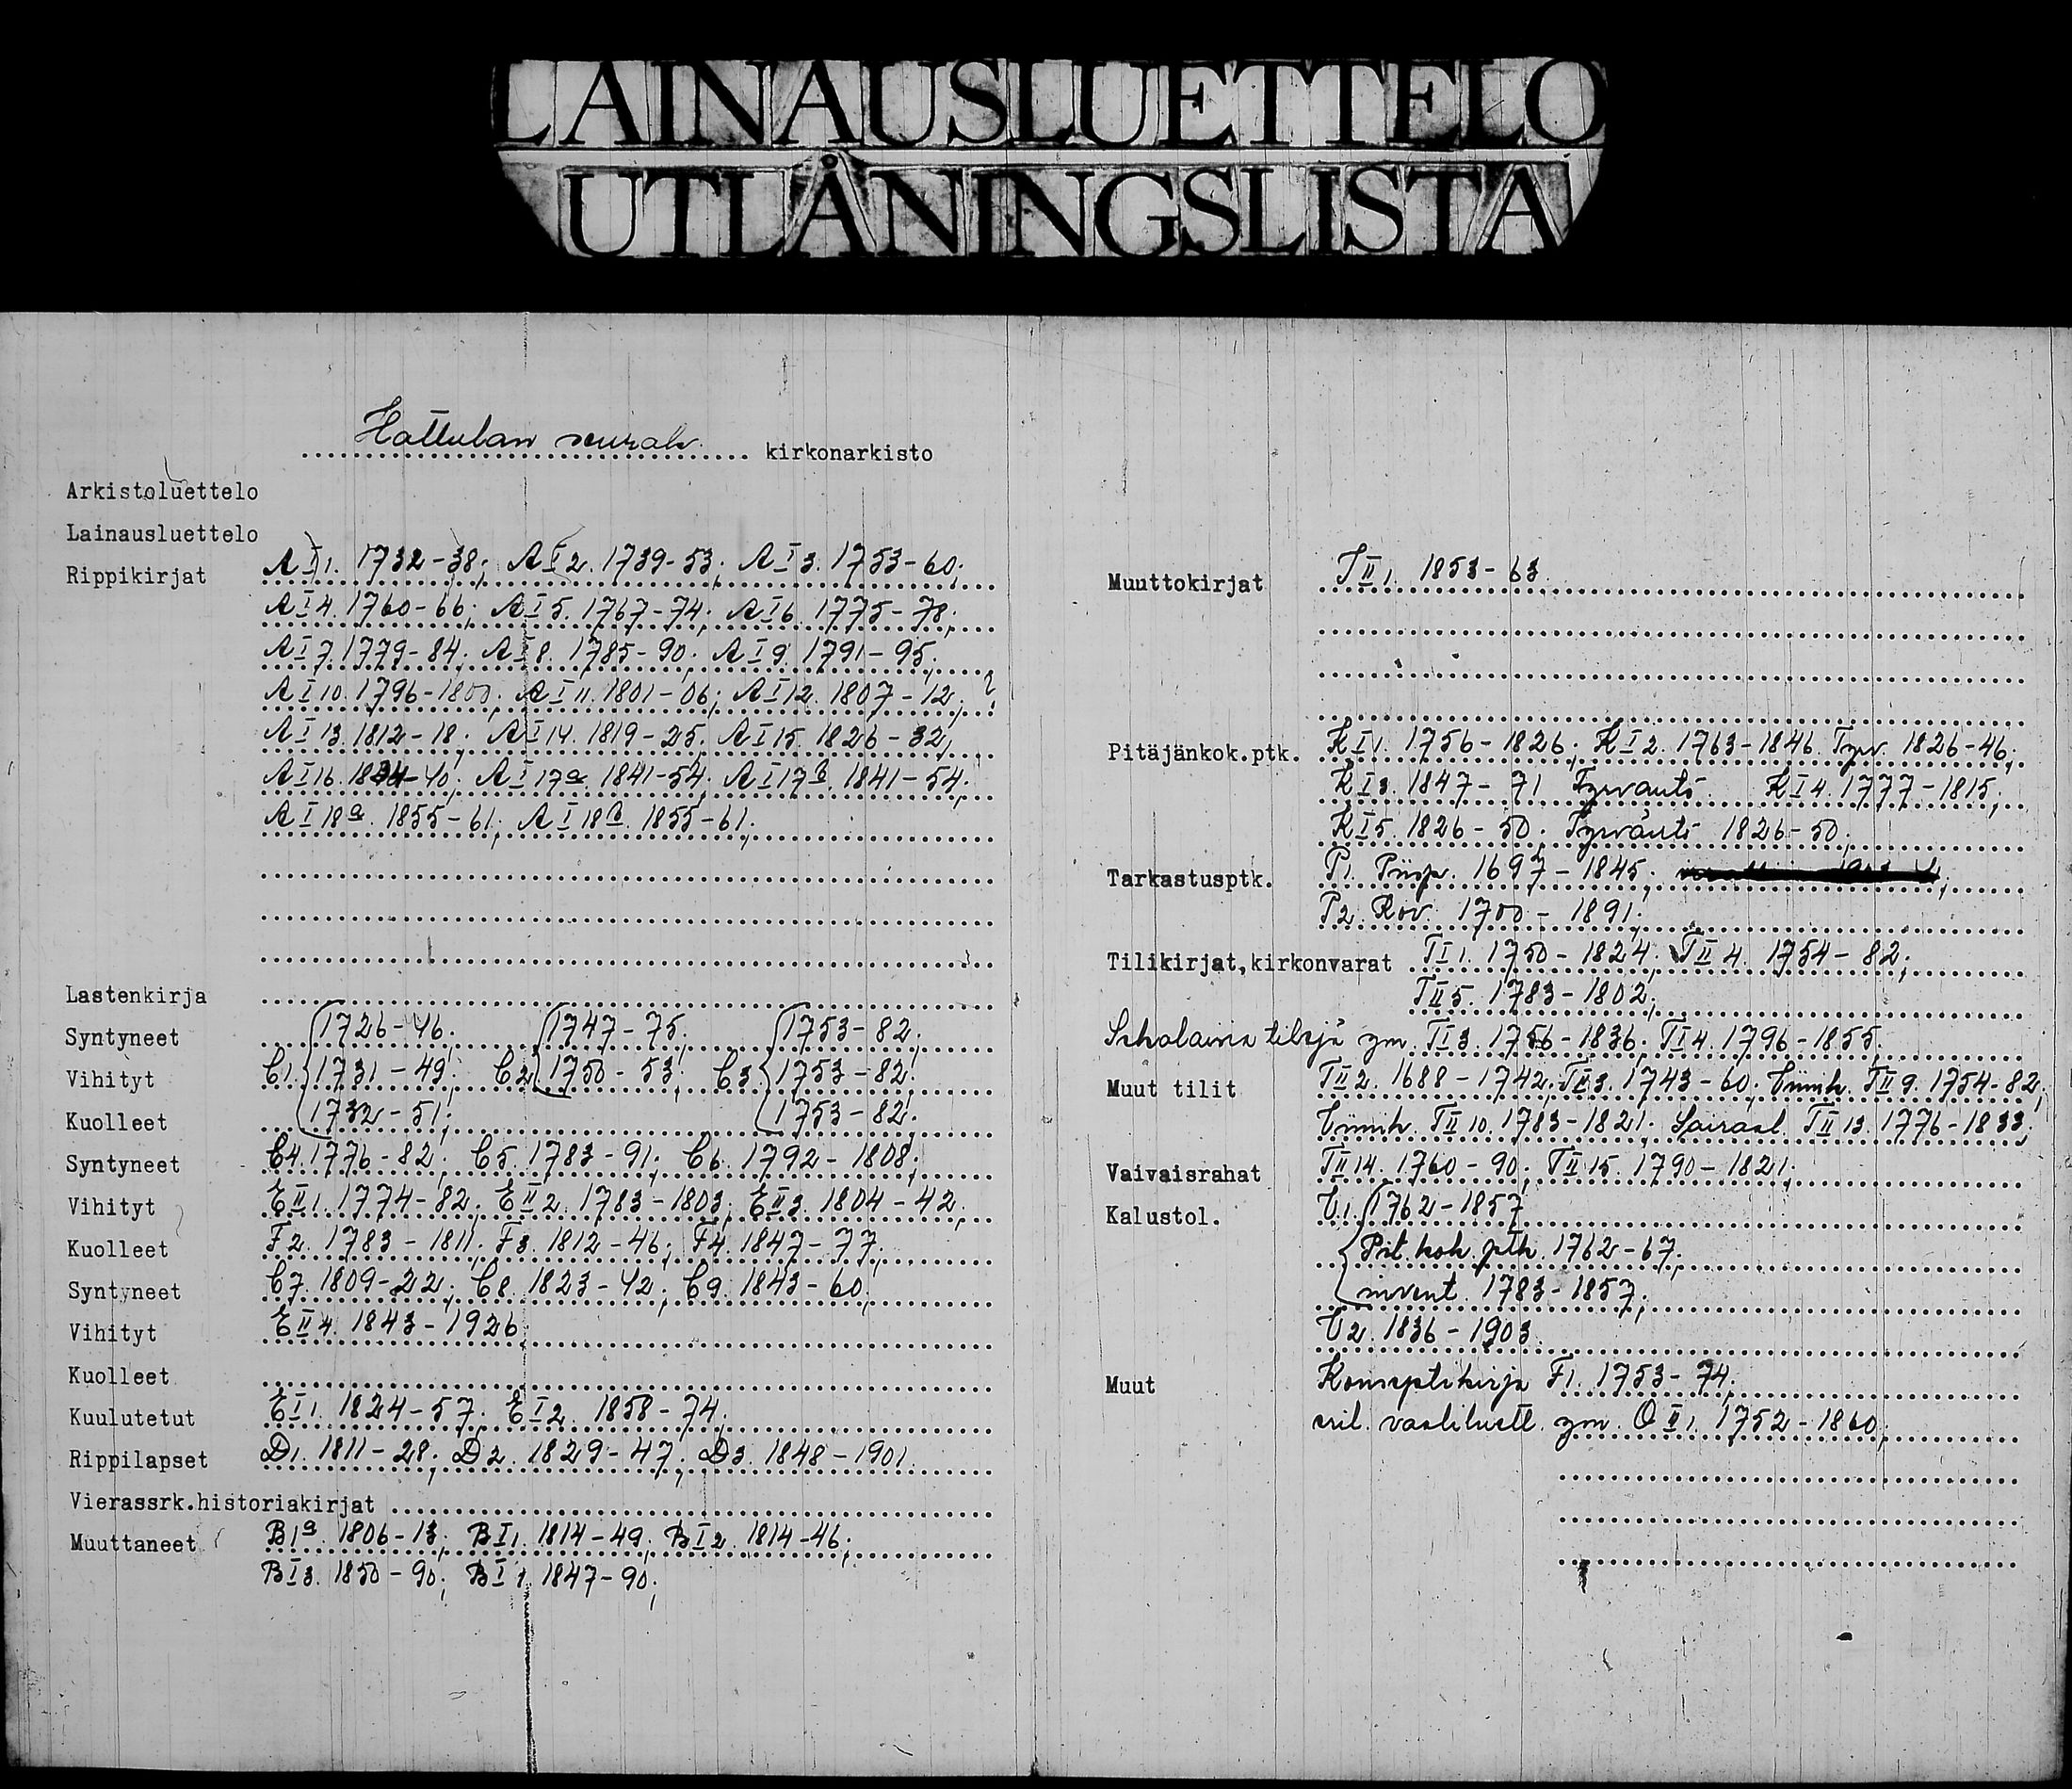 LAINAUSLUETTELO
UTLÅNINGSLISTA
Hattulan seurak. kirkonarkisto
Arkistoluettelo
Lainausluettelo
Rippikirjat A I 1. 1732-38; A I 2. 1739-53; A I 3. 1753-60;
A I 4. 1760-66; A I 5. 1767-74; A I 6. 1775-78;
A I 7. 1779-84; A I 8. 1785-90; A I 9. 1791-95;
A I 10. 1796-1800; A I 11. 1801-06; A I 12. 1807-12;
A I 13. 1812-18; A I 14. 1819-25; A I 15. 1826-32;
A I 16. 1834-40; A I 17a. 1841-54; A I 17b. 1841-54;
A I 18a. 1855-61; A I 18b. 1855-61;
Lastenkirja
Syntyneet 1726-46; 1747-75; 1753-82;
Vihityt C1. 1731-49; C2 1750-53; C3. 1753-82;
Kuolleet 1732-51; 1753-82;
Syntyneet C4. 1776-82; C5. 1783-91; C6. 1792-1808;
Vihityt E II 1. 1774-82; E II 2. 1783-1803; E II 3. 1804-42;
Kuolleet F2. 1783-1811; F3. 1812-46; F4. 1847-77;
Syntyneet C7. 1809-22; C8. 1823-42; C9. 1843-60;
Vihityt E II 4. 1843-1926
Kuolleet
Kuulutetut E I 1. 1824-57; E I 2. 1858-74;
Rippilapset D1. 1811-28; D2. 1829-47; D3. 1848-1901
Vierassrk.historiakirjat
Muuttaneet B1a. 1806-13; B I 1. 1814-49; B I 2. 1814-46;
B I 3. 1850-90; B I 1847-90;
Muuttokirjat J II 1. 1853-63
Pitäjänkok.ptk. K I 1. 1756-1826; K I 2. 1763-1846. Tyrv. 1826-46;
K I 3. 1847-71 Tyrväntö. K I 4. 1777-1815;
K I 5. 1826-50. Tyrväntö 1826-50;
Tarkastusptk. P1. Piisp. 1697-1845;
P2. Rov. 1700-1891;
Tilikirjat,kirkonvarat T I 1. 1750-1824; T II 4. 1754-82;
T II 5. 1783-1802;
ym. T I 3. 1756-1836; T I 4. 1796-1855.
Muut tilit T II 2. 1688-1742; T II 3. 1743-60; T II 9. 1754-82;
T II 10. 1783-1821; Sairaal. T II 13. 1776-1833;
Vaivaisrahat T II 14. 1760-90; T II 15. 1790-1821;
Kalustol. U1. 1762-1857
Pit. kok. ptk. 1762-67;
invent. 1783-1857;
U2. 1836-1903
Muut Konseptikirja F1. 1753-74;
ym. O II 1. 1752-1860;